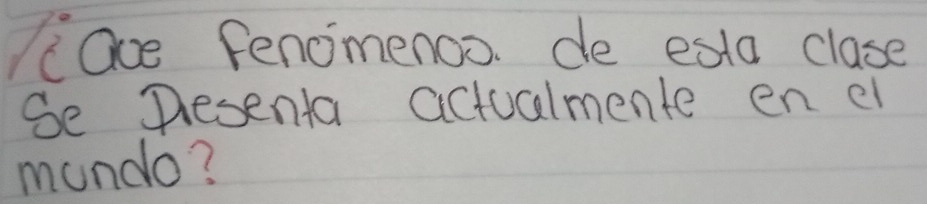 ¿Que fenómenos. de esta clase
Se Presenta actualmente en el
mundo?